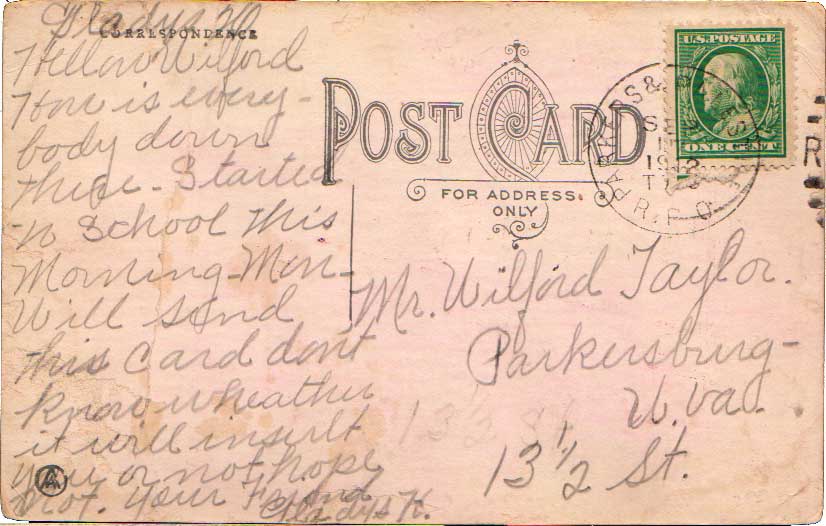 Gladys
CORRESPONDENCE
Hellow Wilford
How is every-
body down
there - Started
to School this
Morning - Mon -
Will send
this Card dont
know wheather
it will insult
you or not, hope
Not. Your Friend
Gladys K.
POST CARD
FOR ADDRESS
ONLY
U.S. POSTAGE
ONE CENT
R.P.O.
R
Mr. Wilford Taylor.
Parkersburg-
W.Va.
13 1/2 St.